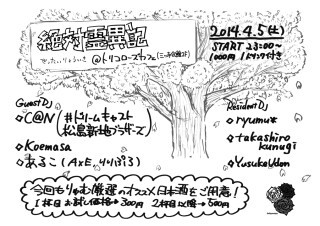 絶対霊異記
ぜったいりょういき
@トリコローズカフェ
2014.4.5(土)
START 23:00〜
1000円 1ドリンク付き
Guest DJ
◇C@N(#ドリームキャスト
松島新地ブラザーズ)
◇Koemasa
◇あるこ
Resident DJ
◇ryumu*
◇takashiro
kunugi
◇YusukeUdon
今回もりゅむ厳選のオススメ日本酒をご用意!
1杯目お試し価格→300円 2杯目以降→500円